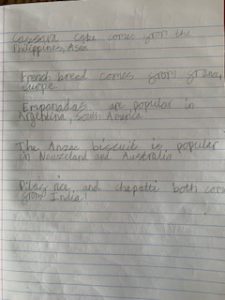 Cassara Cake comes from the
Philippines, Asia
French bread comes from France,
Europe
Empanadas are popular in
Argentina, South America
The Anzac biscuit is popular
in Newzeland and Australia
rice, and chapatti both com
from India